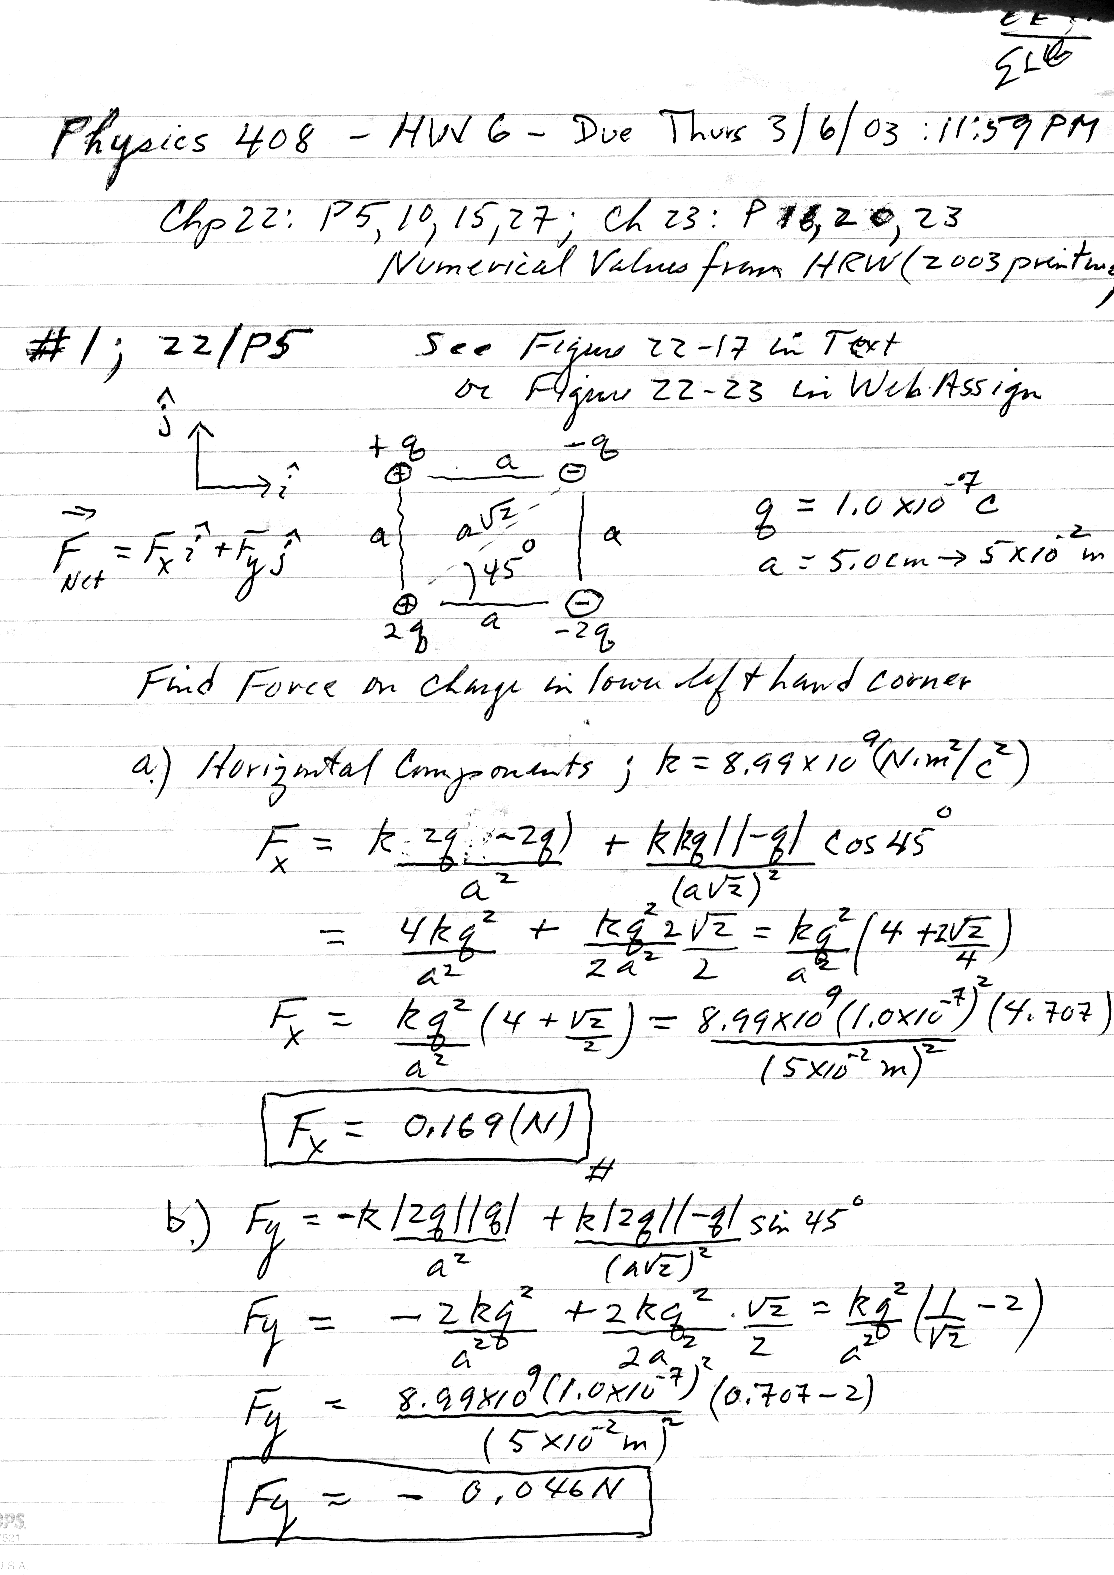 Physics 408 - HW 6 - Due Thurs 3/6/03 : 11:59 PM
Chp 22: P5, 10, 15, 27; Ch 23: P 18, 20, 23
Numerical Values from HRW (2003 printing)
#1; 22/P5 See Figure 22-17 in Text
or Figure 22-23 in WebAssign
ĵ
î
+q a -q
a a√2 a
45°
2q a -2q
F⃗Net = Fx î + Fy ĵ
q = 1.0 x10⁻⁷ C
a = 5.0cm → 5 x10⁻² m
Find Force on charge in lower left hand corner
a.) Horizontal Components ; k = 8.99 x 10⁹ (N·m²/c²)
Fx = k 2q -2q) / a² + k kq||-q| / (a√2)² cos 45°
= 4kq² / a² + kq² 2 / 2a² √2 / 2 = kq² / a² (4 + 2√2 / 4)
Fx = kq² / a² (4 + √2 / 2) = 8.99x10⁹ (1.0x10⁻⁷)² (4.707) / (5x10⁻² m)²
Fx = 0.169 (N)
#
b.) Fy = -k |2q||q| / a² + k|2q||-q| / (a√2)² sin 45°
Fy = - 2kq² / a² + 2kq² / 2a² · √2 / 2 = kq² / a² (1/√2 - 2)
Fy = 8.99x10⁹ (1.0x10⁻⁷)² / (5x10⁻² m)² (0.707 - 2)
Fy = - 0.046N